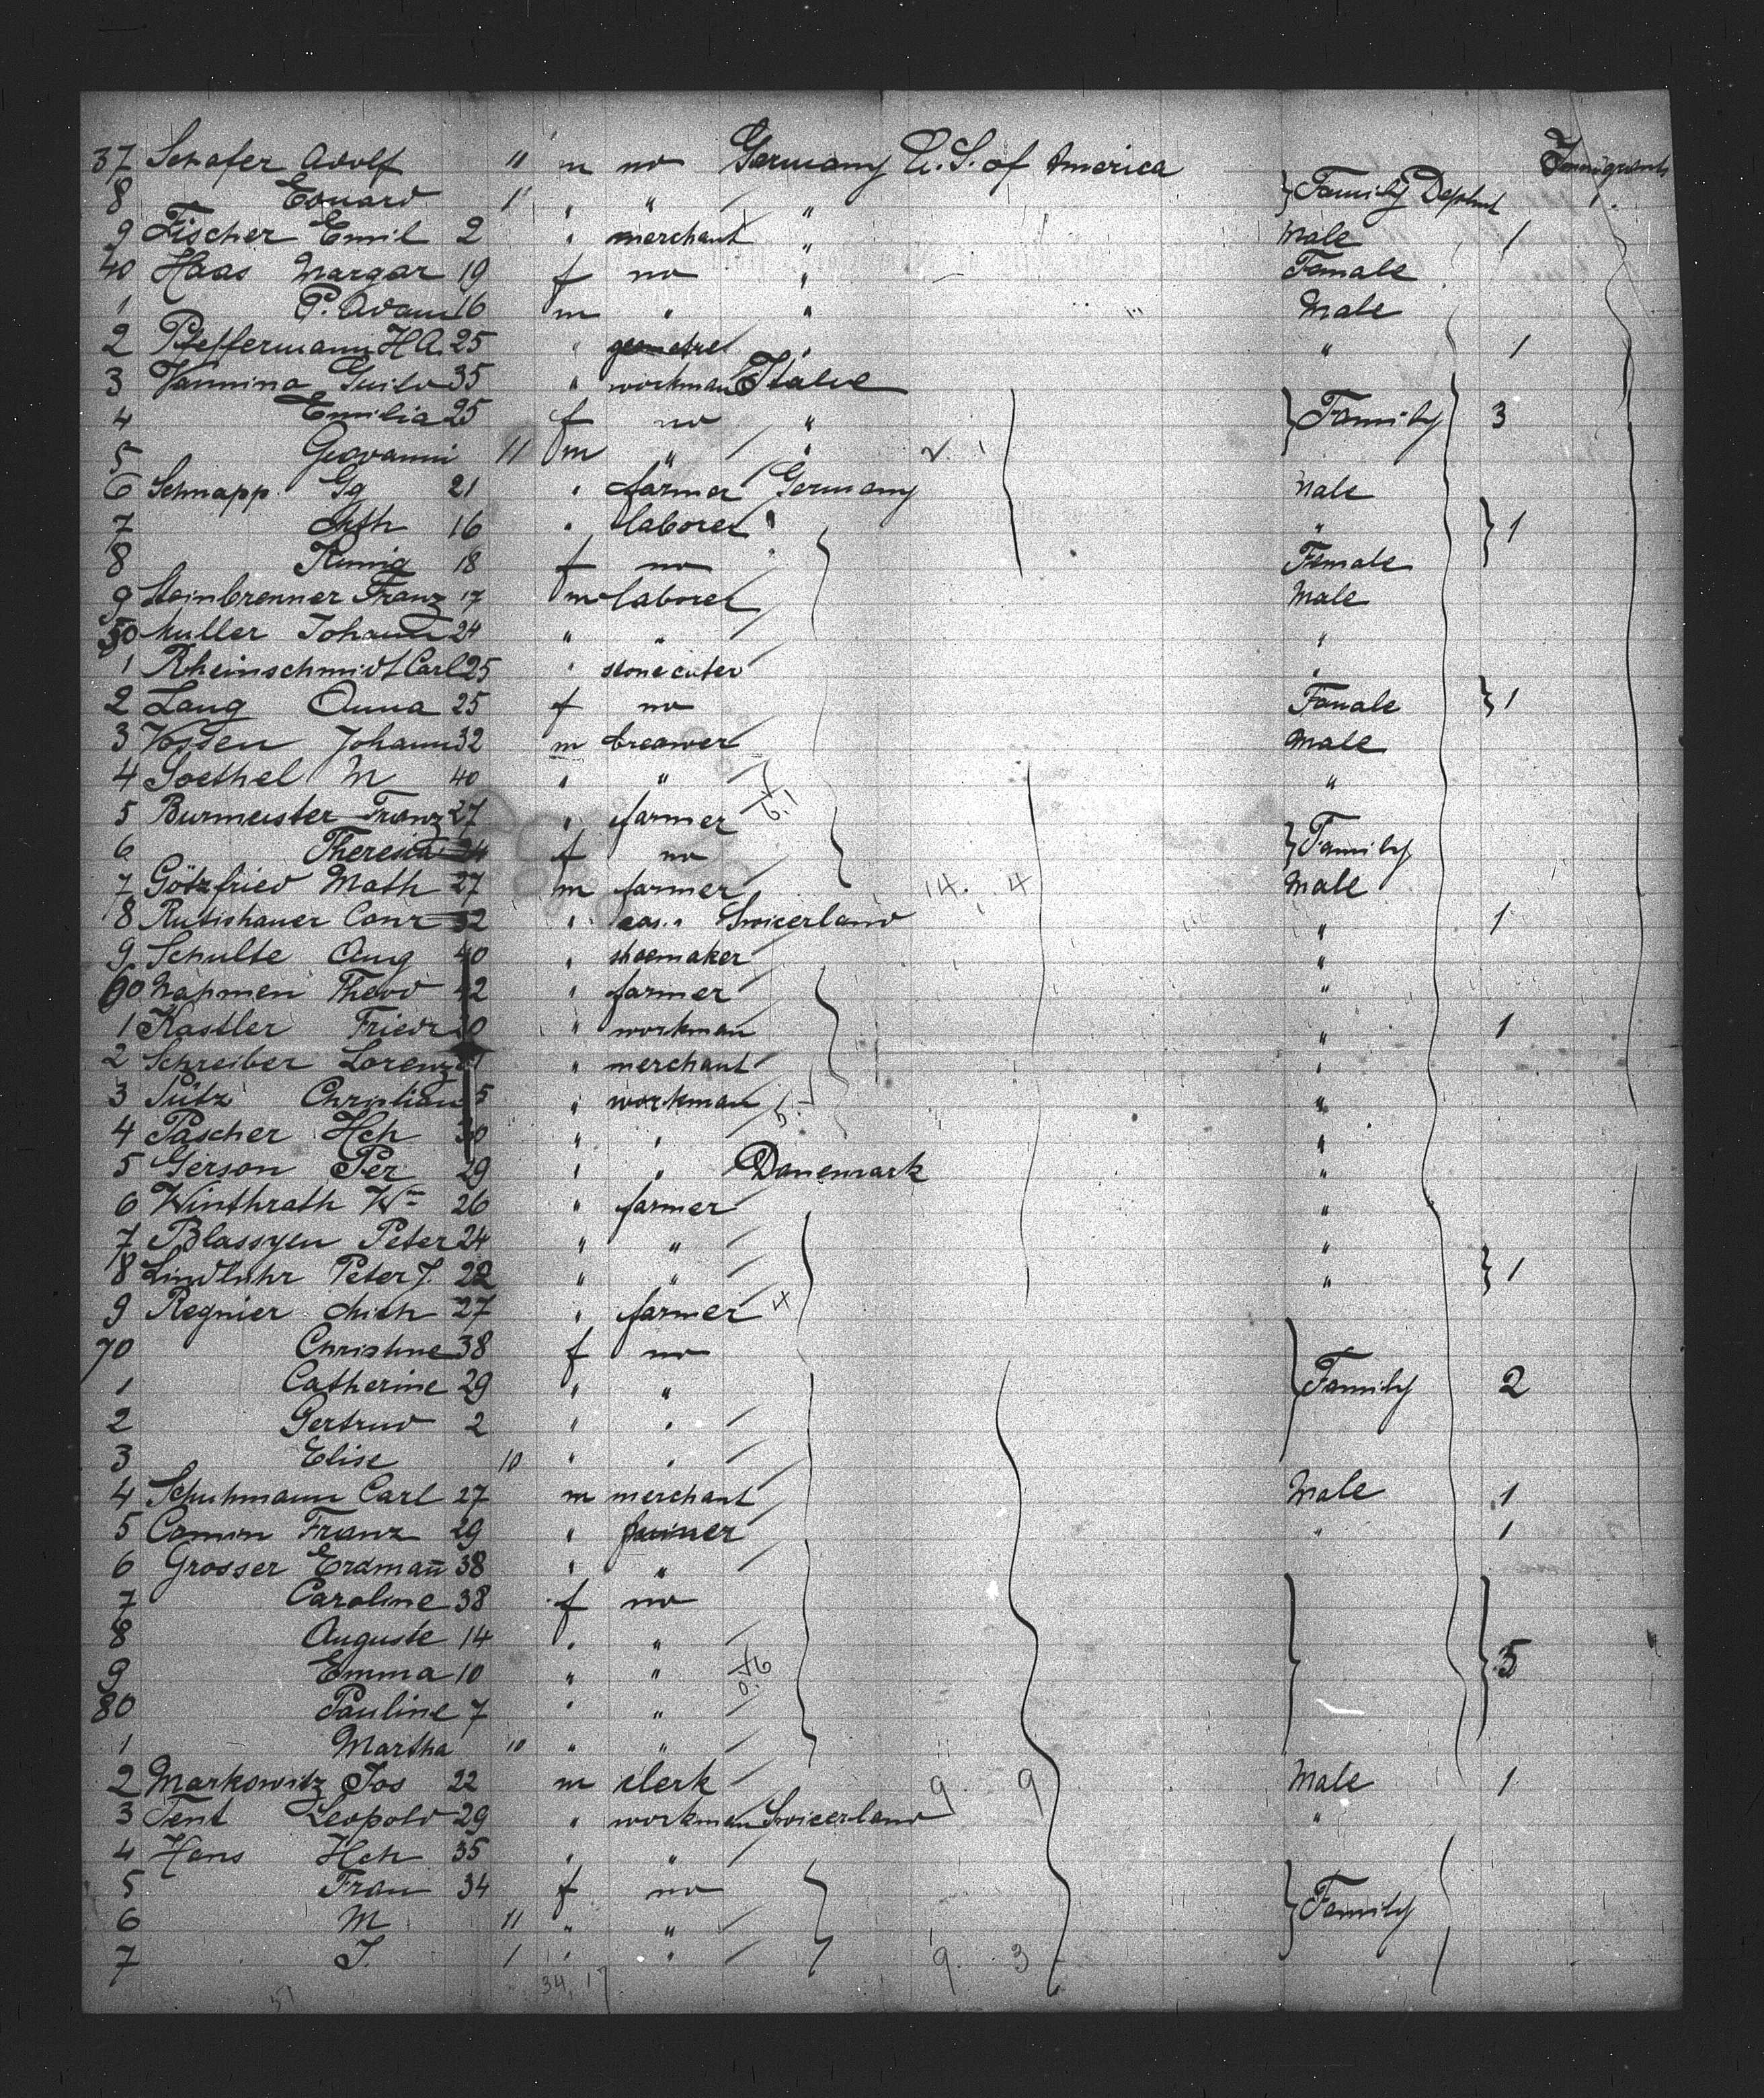 37 Schafer Adolf 11 m no Germany U.S. of America Immigrants
8 Eduard 1 " " " } Family Dephut 1.
9 Fischer Emil 2 " merchant " Male 1
40 Haas Margar 19 f no " Female
1 P. Adam 16 m " " Male
2 Pfeffermann H A. 25 " " " 1
3 Vannina Guido 35 " workman Italie
4 Emilia 25 f no " } Family 3
5 Geovanni 11 m " " 2. 1
6 Schnapp Gg 21 " farmer Germany Male
7 16 " laborer " " } 1
8 18 f no Female
9 Steinbrenner Franz 17 m laborer Male
50 Muller Johann 24 " " "
1 Rheinschmidt Carl 25 " stonecuter "
2 Lang Anna 25 f no Female } 1
3 Vossen Johann 32 m breawer Male
4 Soethel M 40 " " "
5 Burmeister Franz 27 " farmer
6 Theresia 24 f no } Family
7 Götzfried Math 27 m farmer 14. 4 Male
8 Rutishauer Conr 32 " Swicerland " 1
9 Schulte Aug 40 " shoemaker "
60 Theod 42 " farmer "
1 Kastler Friedr " workman " 1
2 Schreiber Lorenz " merchant "
3 Sütz Christian 5 " workman "
4 Pascher Hch 30 " " "
5 Gerson Per 29 " " Danemark "
6 Winthrath Wm 26 " farmer "
7 Blassyen Peter 24 " " "
8 Lindluhr Peter J. 22 " " " } 1
9 Regnier Mich 27 " farmer 4
70 Christine 38 f no
1 Catherine 29 " " } Family 2
2 Gertrud 2 " "
3 Elise 10 " "
4 Schuhmann Carl 27 m merchant Male 1
5 Comin Franz 29 " " 1
6 Grosser Erdmañ 38 " "
7 Caroline 38 f no
8 Auguste 14 " "
9 Emma 10 " " } } 5
80 Pauline 7 " "
1 Martha 10 " "
2 Markowitz Jos 22 m clerk 9. 9 Male 1
3 Tent Leopold 29 " workman Swicerland "
4 Hans Hch 35 " "
5 Frau 34 f no
6 M 11 " " } Family
7 J. 1 " " 9. 3
51 34, 17